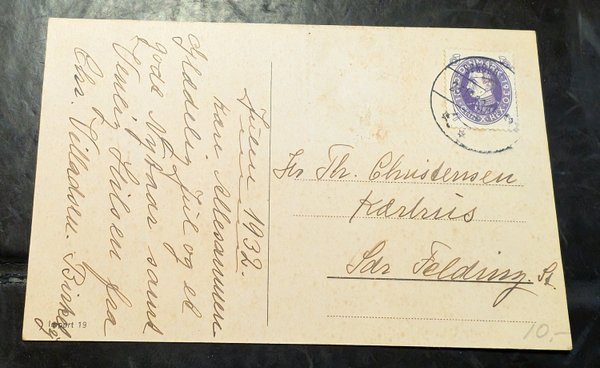 Julen 1932.
kære Allesammen
Glædelig Jul og et
gode Nytaar samt
Venlig Hilsen fra
Chr. Villadsen.
Import 19
DANMARK
Hr Th. Christensen
Kærhus
Sdr Felding. St.
10,-